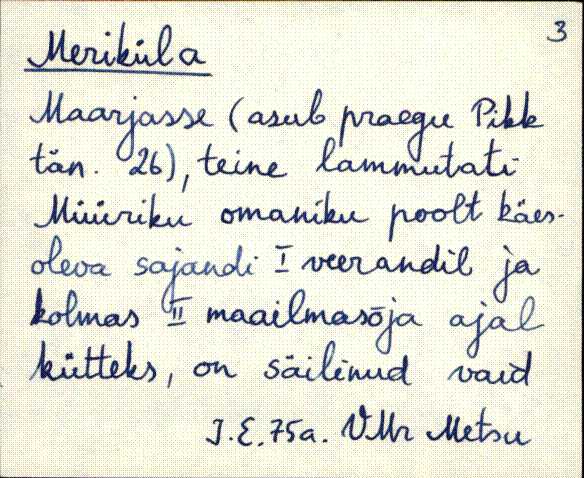 3
Meriküla
Maarjasse (asub praegu Pikk
tän. 26), teine lammutati
Müüriku omaniku poolt käes-
oleva sajandi I veerandil ja
kolmas II maailmasõja ajal
kütteks, on säilinud vaid
J.E.75a. VMr Metsu